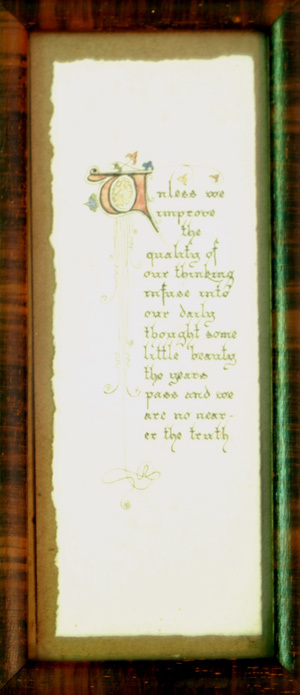 Unless we
improve
the
quality of
our thinking
infuse into
our daily
thought some
little beauty,
the years
pass and we
are no near-
er the truth